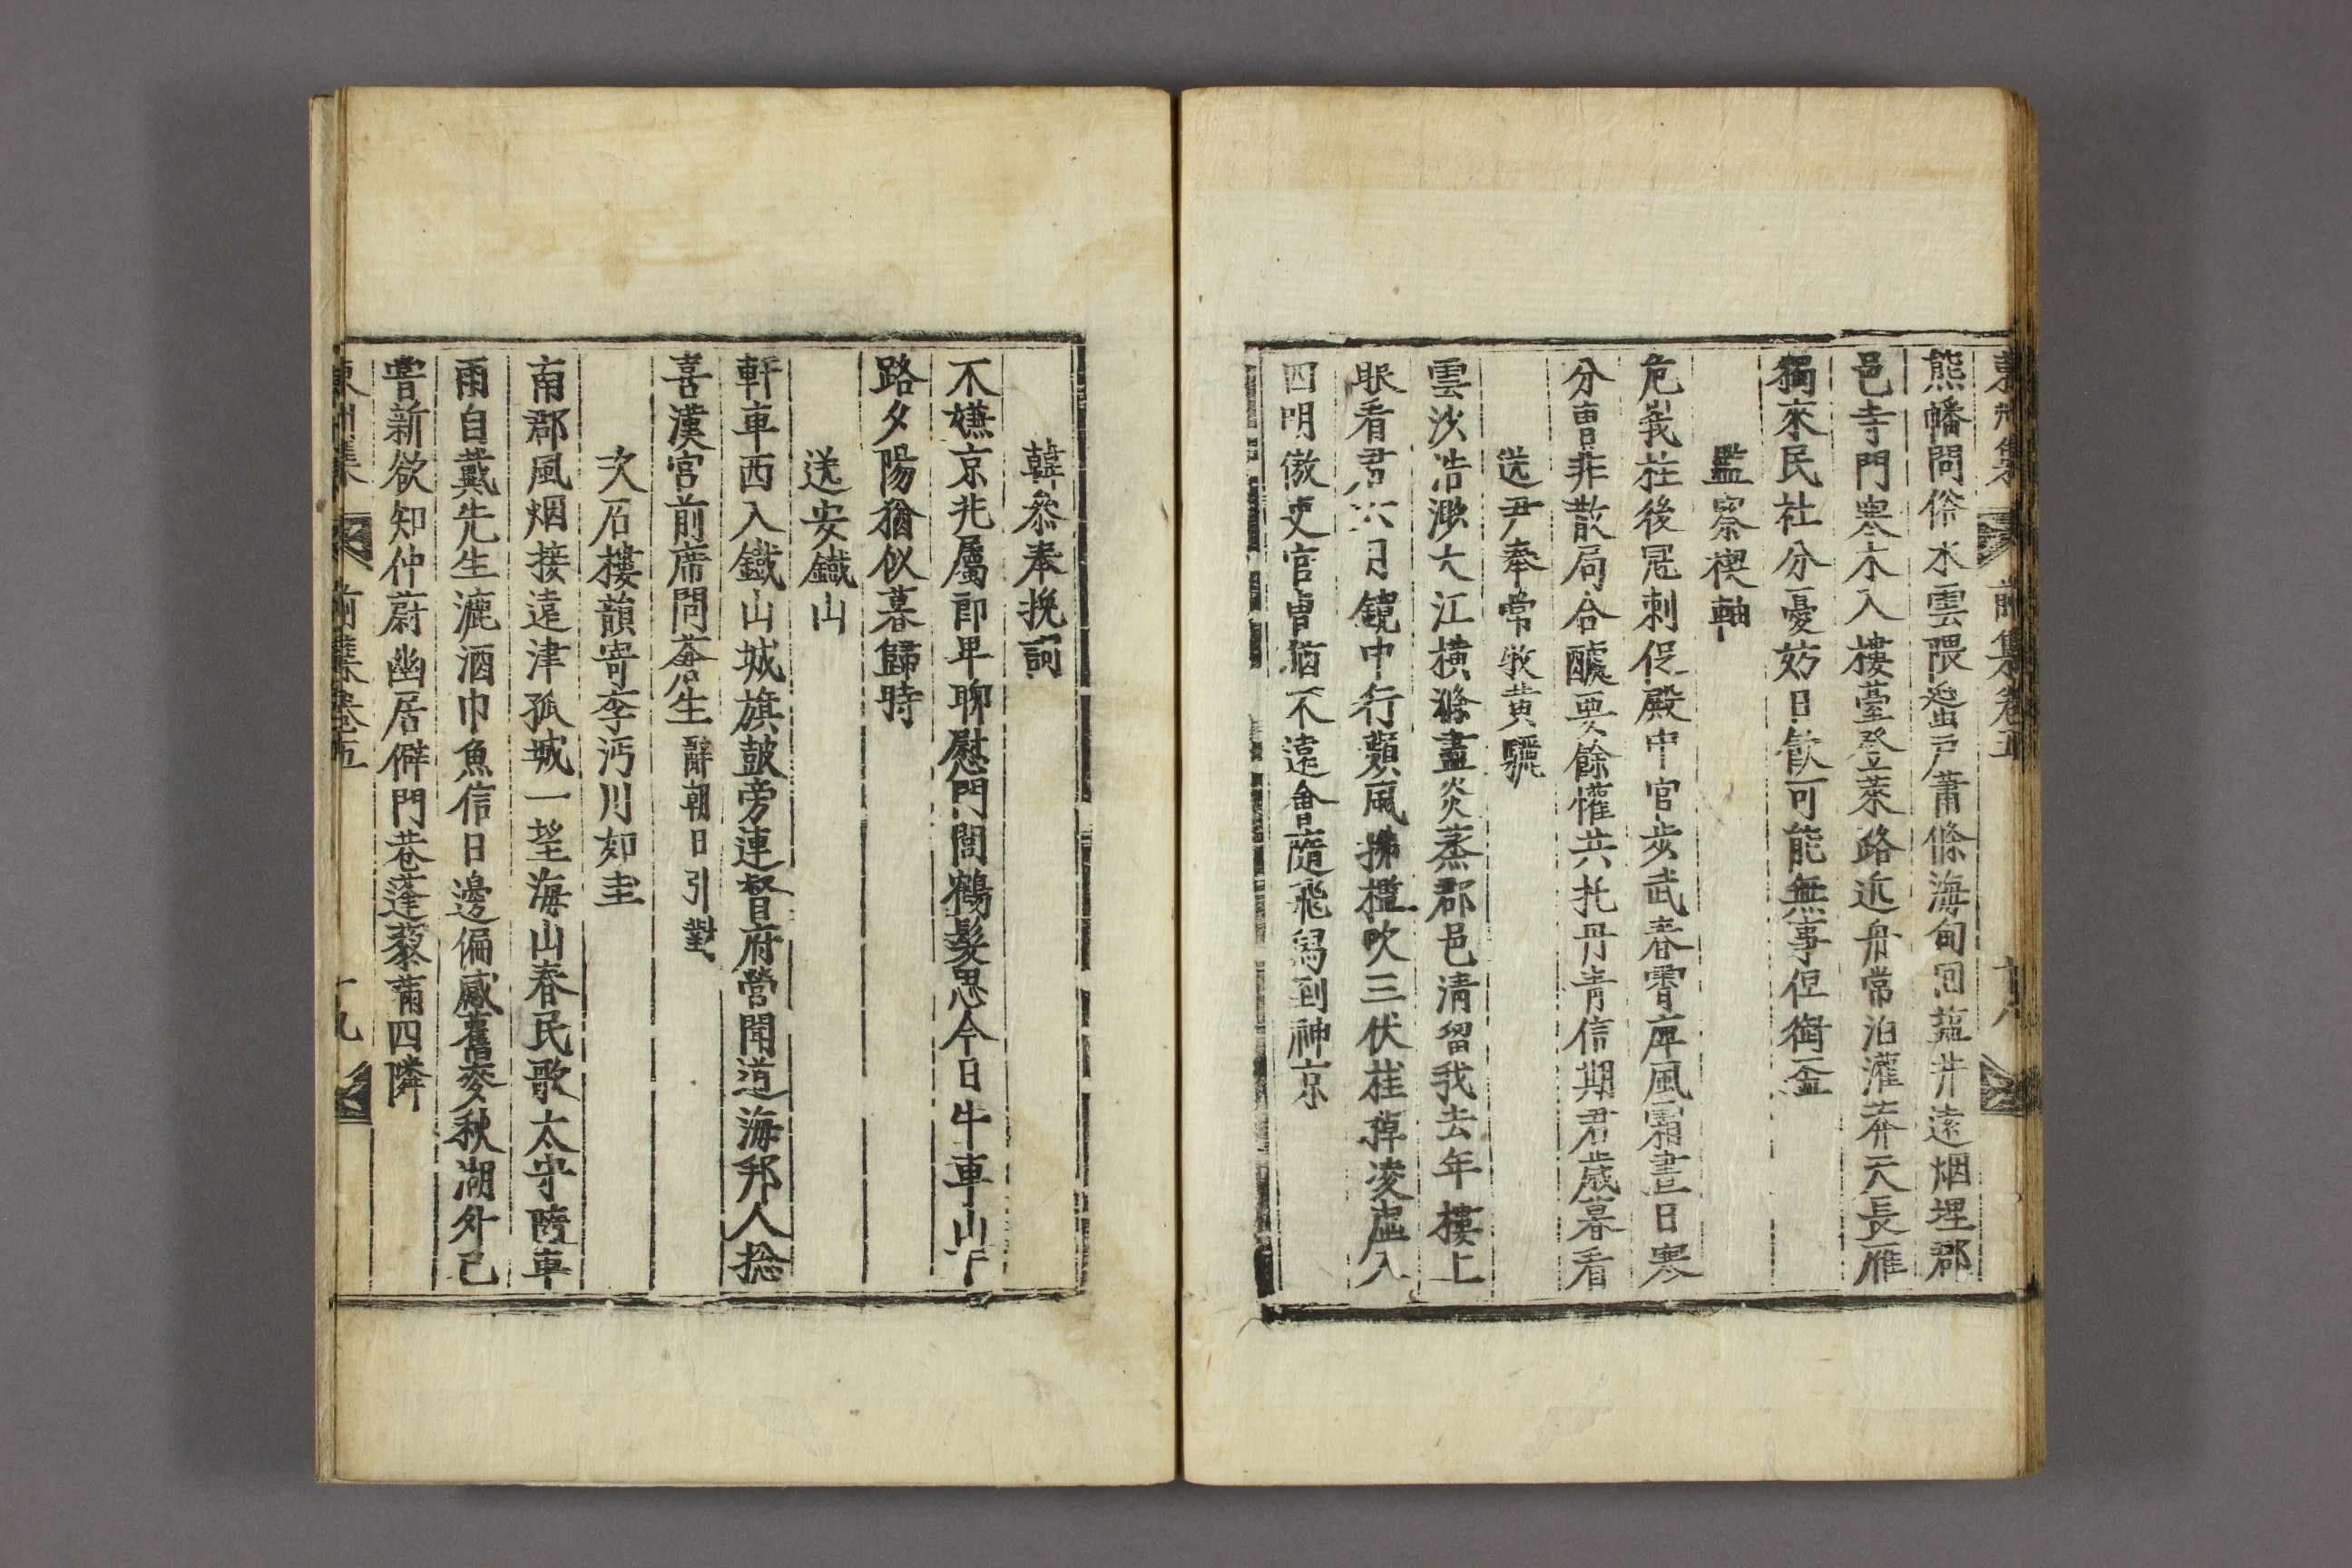 東州集 前集卷五 十八
熊幡問俗水雲隈蜑戶蕭條海甸回鹽井遠烟埋郡
邑寺門寒木入樓臺登萊路近舟常泊灌莽天長雁
獨來民社分憂妨日飮可能無事但銜盃
監察禊軸
危峩柱後冠刺促殿中官步武春霄厙風霜晝日寒
分曹非散局合醵要餘懽共托丹靑信期君歲暮看
送尹奉常牧黃驪
雲沙浩渺大江橫滌盡炎蒸郡邑淸留我去年樓上
眠看君六月鏡中行蘋風拂檻吹三伏桂棹凌虛入
四明傲吏官曹猶不遠會隨飛舃到神京
韓叅奉挽詞
不嫌京兆屬郎卑聊慰門閭鶴髮思今日牛車山下
路夕陽猶似暮歸時
送安鐵山
軒車西入鐵山城旗鼓旁連督府營聞道海邦人捴
喜漢宮前席問蒼生 辭朝日引對
次石樓韻寄李沔川如圭
南郡風烟接遠津孤城一望海山春民歌太守隨車
雨自戴先生漉酒巾魚信日邊偏感舊麥秋湖外已
嘗新欲知仲蔚幽居僻門巷蓬藜蔳四隣
東州集 前集卷五 十九